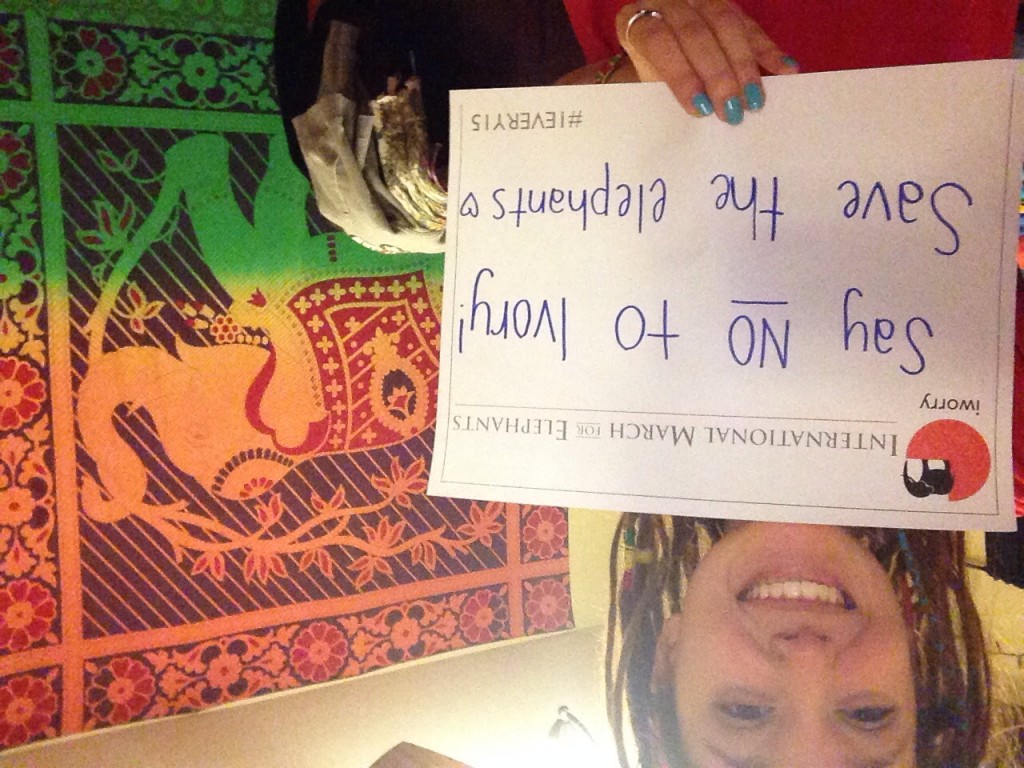 INTERNATIONAL MARCH FOR ELEPHANTS
iworry
Say NO to Ivory!
Save the elephants ♡
#1EVERY15